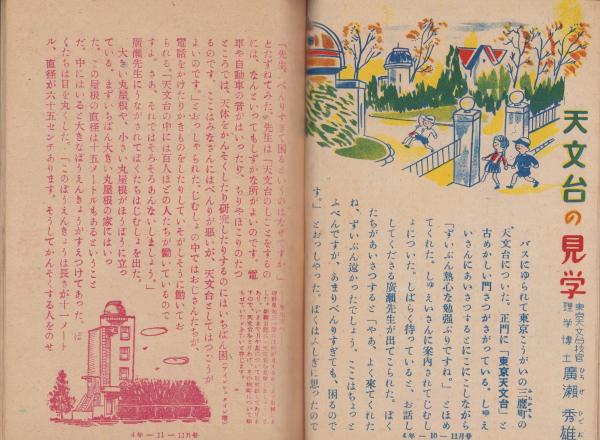 天文台の見学
東京天文台技官
理学博士 廣瀬秀雄
ひろせ ひでお
バスにゆられて東京こうがいの三鷹町の
天文台についた。正門に「東京天文台」と
古めかしい門さつがさがっている。しゅえ
いさんにあいさつするとにこにこしながら
「ずいぶん熱心な勉強ぶりですね。」とほめ
てくれた。しゅえいさんに案内されてじむし
ょについた。しばらく待っていると、お話し
してくださる廣瀬先生が出てこられた。ぼく
たちがあいさつすると「やあ、よく來てくれた
ね、ずいぶん遠かったでしょう。ここはちょっと
ふべんですが、あまりべんりすぎても、困るので
す。」とおっしゃった。ぼくはふしぎに思ったので
4年—10—11月号
「先生、べんりすぎて困るというのはなぜですか。」
とたずねてみた。先生は「天文台のしごとをするの
には、なんといってもしずかな所がよいのです。電
車や自動車の音がはいったり、ちりやほこりのたつ
ところでは、天体をかんそくしたり研究したりするのにはいちばん困
るのです。すこしはみなさんにはべんりが悪いが、天文台としてはつごうが
よいのです。」とおしゃられた。じむしょの中ではおじさんたちが、
電話をかけたりかきものをしたりしていそがしそうに働いてお
られる。「天文台の中には百人ほどの人たちが働いているので
すよ。さあ、それではそろそろあんないしましょう。」
廣瀬先生にうながされてぼくたちはじむしょを出た。
大きい丸屋根や、小さい丸屋根がほうぼうに立っ
ている。まずいちばん大きい丸屋根の家にはいっ
た。この屋根の直徑は十五メートルもあるということ
だ。中にはいると大きなぼうえんきょうがすえつけてあった。ぼ
くたちは目を丸くした。「このぼうえんきょうは長さが十一メート
ル、直徑が六十五センチあります。そうしてかんそくする人をのせ
(アインシュタイン塔)
4年—11—11月号